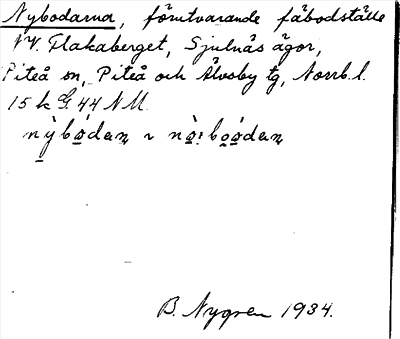 Nybodarna, förutvarande fäbodställe
NV. Flakaberget, Sjulnäs ägor,
Piteå sn, Piteå och Älvsby tg, Norrb. l.
15 k G. 44 NM.
B. Nygren 1934.